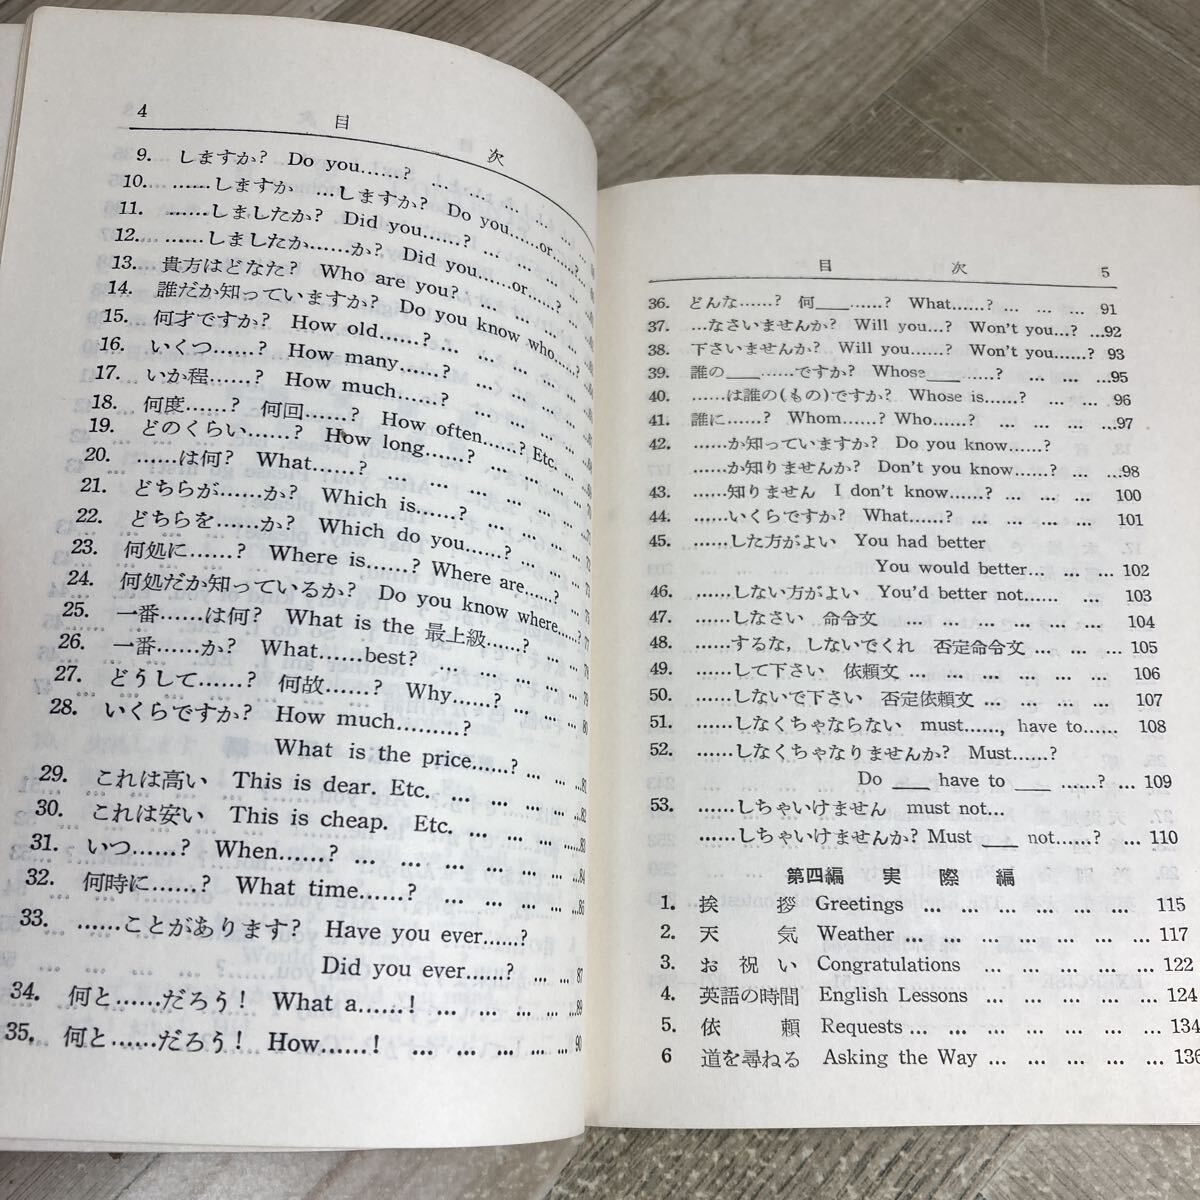 4 目 次
9. しますか? Do you……? … … …
10. ……しますか …しますか? Do you……or……?
11. ……しましたか? Did you……? … … … …
12. ……しましたか……か? Did you……or……?
13. 貴方はどなた? Who are you? … … …
14. 誰だか知っていますか? Do you know who……?
15. 何才ですか? How old……? … … … …
16. いくつ……? How many……? … … …
17. いか程……? How much……? … … …
18. 何度……? 何回……? How often……? Etc.
19. どのくらい……? How long……? … …
20. ……は何? What……? … … … …
21. どちらが……か? Which is……? … … …
22. どちらを……か? Which do you……? …
23. 何処に……? Where is……? Where are……?
24. 何処だか知っているか? Do you know where……?
25. 一番……は何? What is the 最上級……? …
26. 一番……か? What……best? … … … …
27. どうして……? 何故……? Why……? … … …
28. いくらですか? How much………?
What is the price……? … …
29. これは高い This is dear. Etc. … … … … 81
30. これは安い This is cheap. Etc. … … … … 82
31. いつ……? When……? … … … … … 83
32. 何時に……? What time……? … … … … 84
33. ……ことがあります? Have you ever……?
Did you ever……? … … 87
34. 何と……だろう! What a……! … … … … … 89
35. 何と……だろう! How……! … … … … … 90
目 次 5
36. どんな……? 何___……? What……? … … … 91
37. …なさいませんか? Will you…? Won't you…? …92
38. 下さいませんか? Will you……? Won't you……? 93
39. 誰の___……ですか? Whose___……? … … …95
40. ……は誰の(もの)ですか? Whose is……? … … 96
41. 誰に……? Whom……? Who……? … … … …97
42. ……か知っていますか? Do you know……?
……か知りませんか? Don't you know……? … …98
43. ……知りません I don't know……? … … … 100
44. ……いくらですか? What……? … … … … 101
45. ……した方がよい You had better
You would better… … … 102
46. ……しない方がよい You'd better not…… … 103
47. ……しなさい 命令文 … … … … … … 104
48. ……するな, しないでくれ 否定命令文 … … … 105
49. ……して下さい 依頼文 … … … … … … 106
50. ……しないで下さい 否定依頼文 … … … … 107
51. ……しなくちゃならない must……, have to…… 108
52. ……しなくちゃなりませんか? Must……?
Do ___ have to ___ ……? … 109
53. ……しちゃいけません must not…
……しちゃいけませんか? Must ___ not……? … 110
第四編 実際編
1. 挨拶 Greetings … … … … … … 115
2. 天気 Weather … … … … … … 117
3. お祝い Congratulations … … … … … 122
4. 英語の時間 English Lessons … … … … … 124
5. 依頼 Requests… … … … … … 134
6 道を尋ねる Asking the Way … … … … … 136